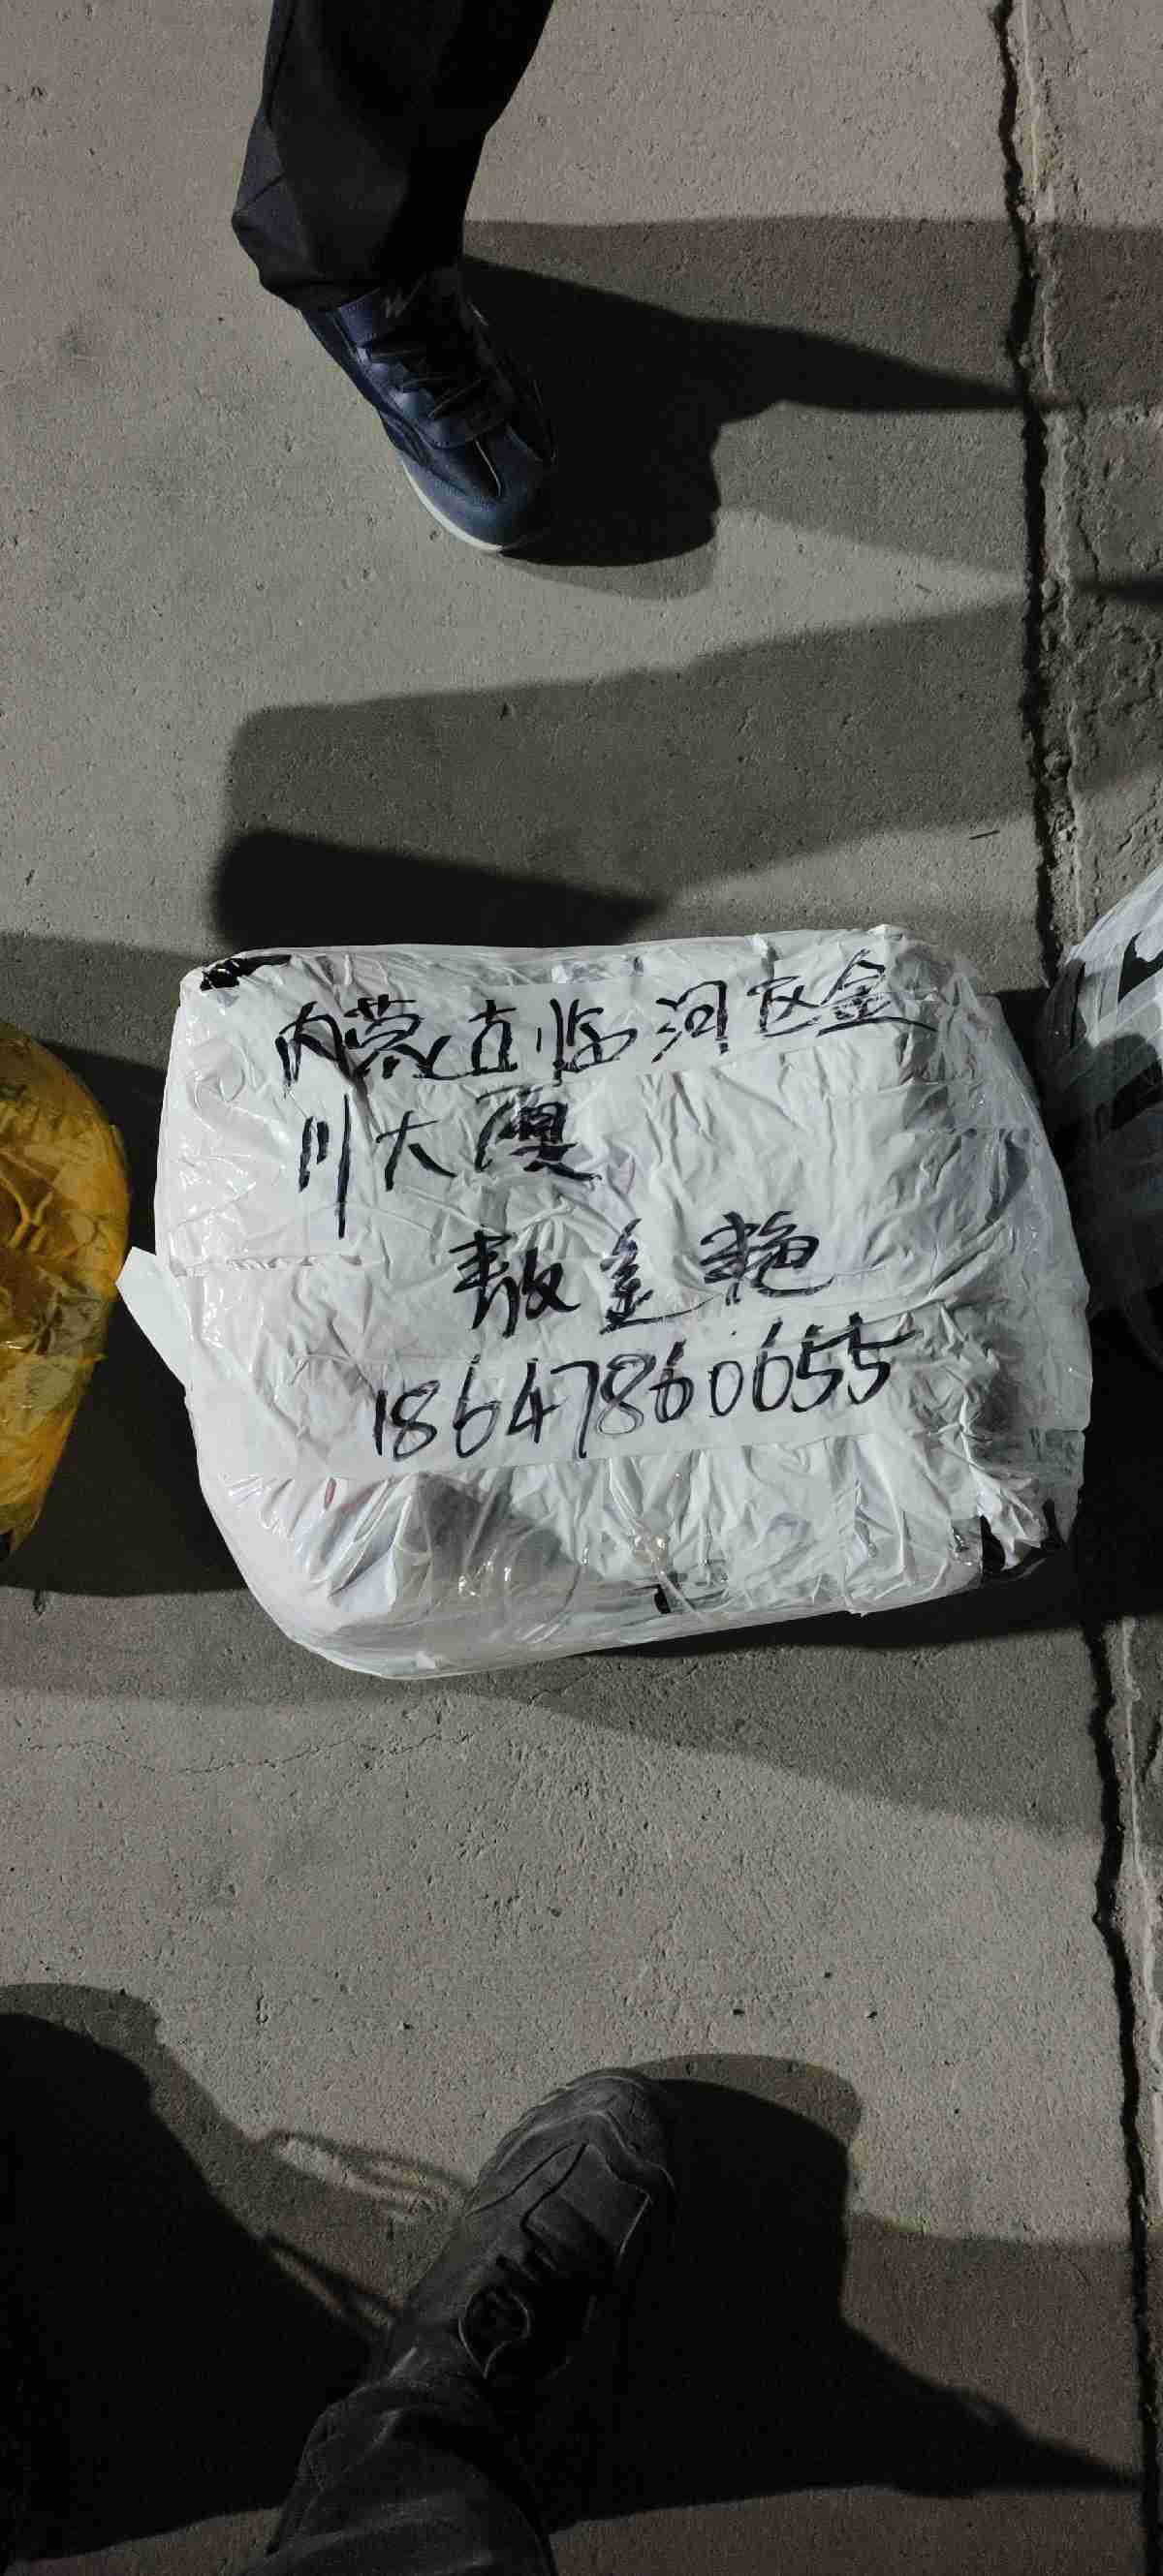 内蒙古临河区金
川大厦
敖金艳
18647860655